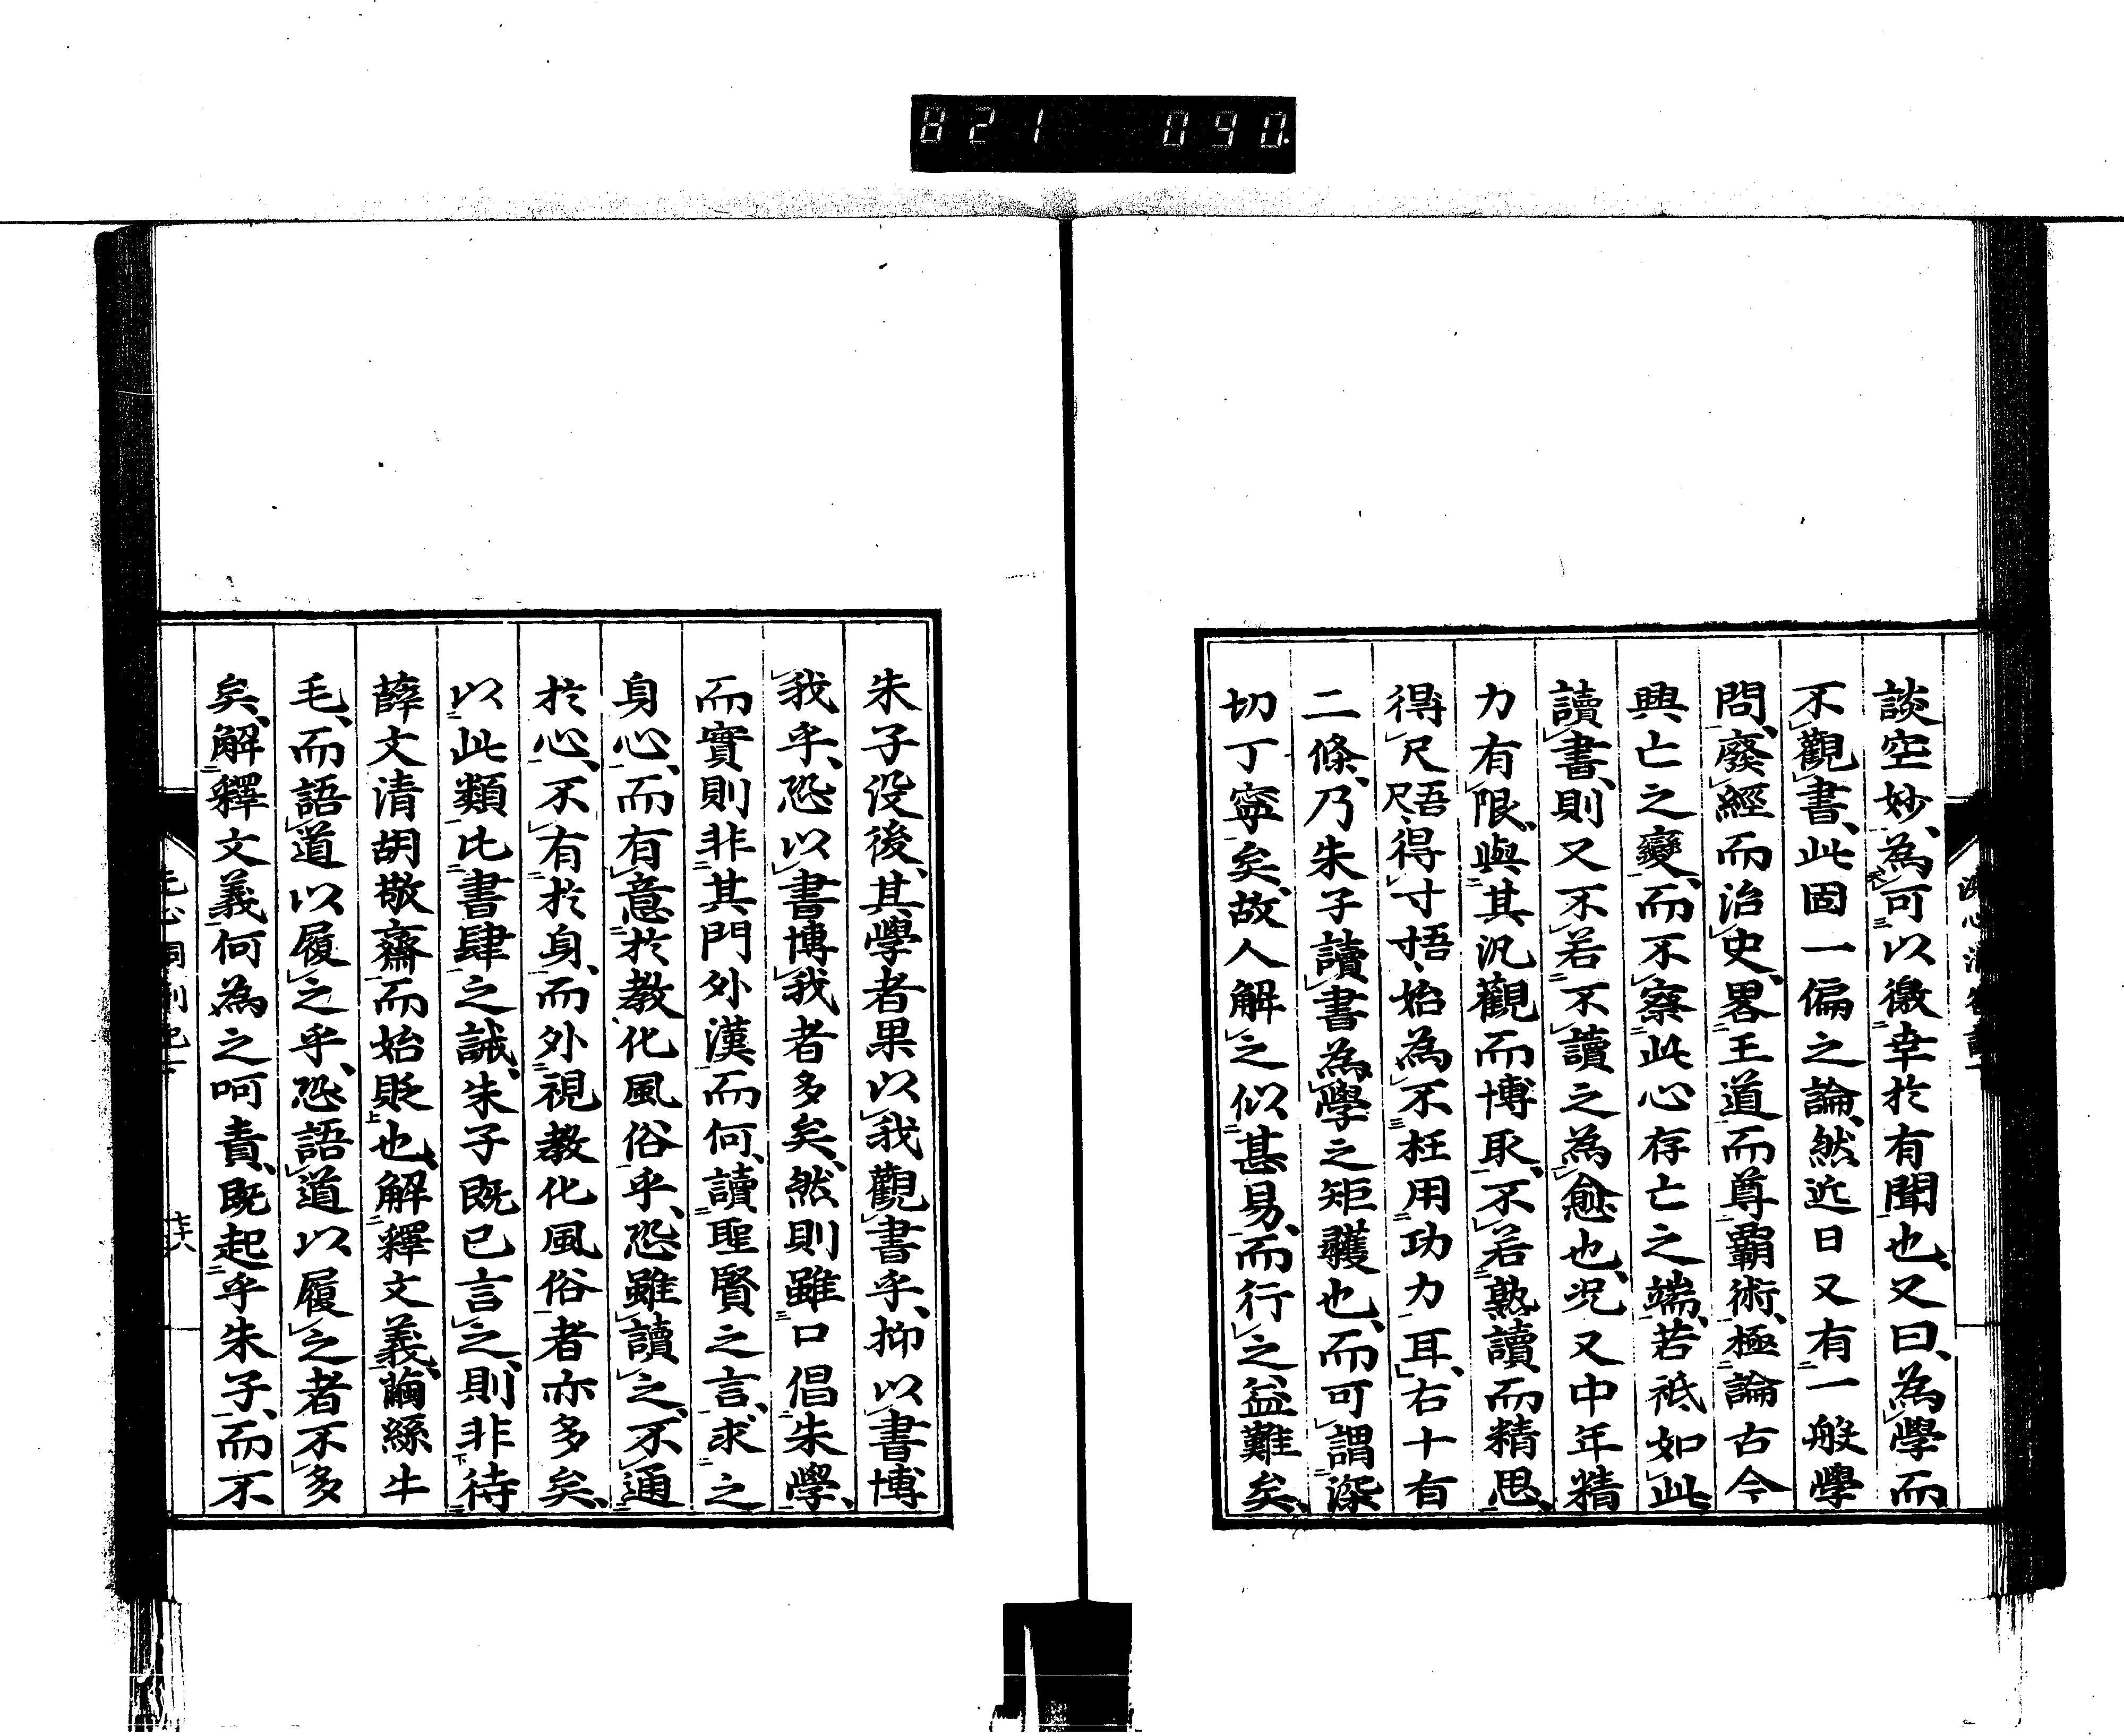 821 090.
談空妙、為可以徼幸於有聞也、又曰、為學而
不觀書、此固一偏之論、然近日又有一般學
問、廢經而治史、畧王道而尊霸術、極論古今
興亡之變、而不察此心存亡之端、若祗如此
讀書、則又不若不讀之為愈也、況又中年精
力有限、與其汎觀而博取、不若熟讀而精思、
得尺吾尺、得寸吾寸、始為不枉用功力耳、右十有
二條、乃朱子讀書為學之矩矱也、而可謂深
切丁寧矣、故人解之似甚易、而行之益難矣、
朱子沒後、其學者果以我觀書乎、抑以書博
我乎、恐以書博我者多矣、然則雖口倡朱學、
而實則非其門外漢而何、讀聖賢之言、求之
身心、而有意於教化風俗乎、恐雖讀之、不通
於心、不有於身、而外視教化風俗者亦多矣、
以此類比書肆之誡、朱子既已言之、則非待
薛文清胡敬齋而始貶也、解釋文義、繭絲牛
毛、而語道以履之乎、恐語道以履之者不多
矣、解釋文義何為之呵責、既起乎朱子、而不
七十八